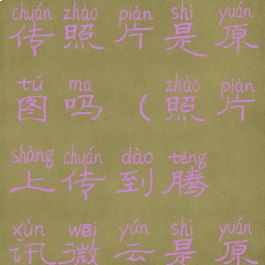 chuán zhào piàn shì yuán
传照片是原
tú ma zhào piàn
图吗（照片
shàng chuán dào téng
上传到腾
xùn wēi yún shì yuán
讯微云是原